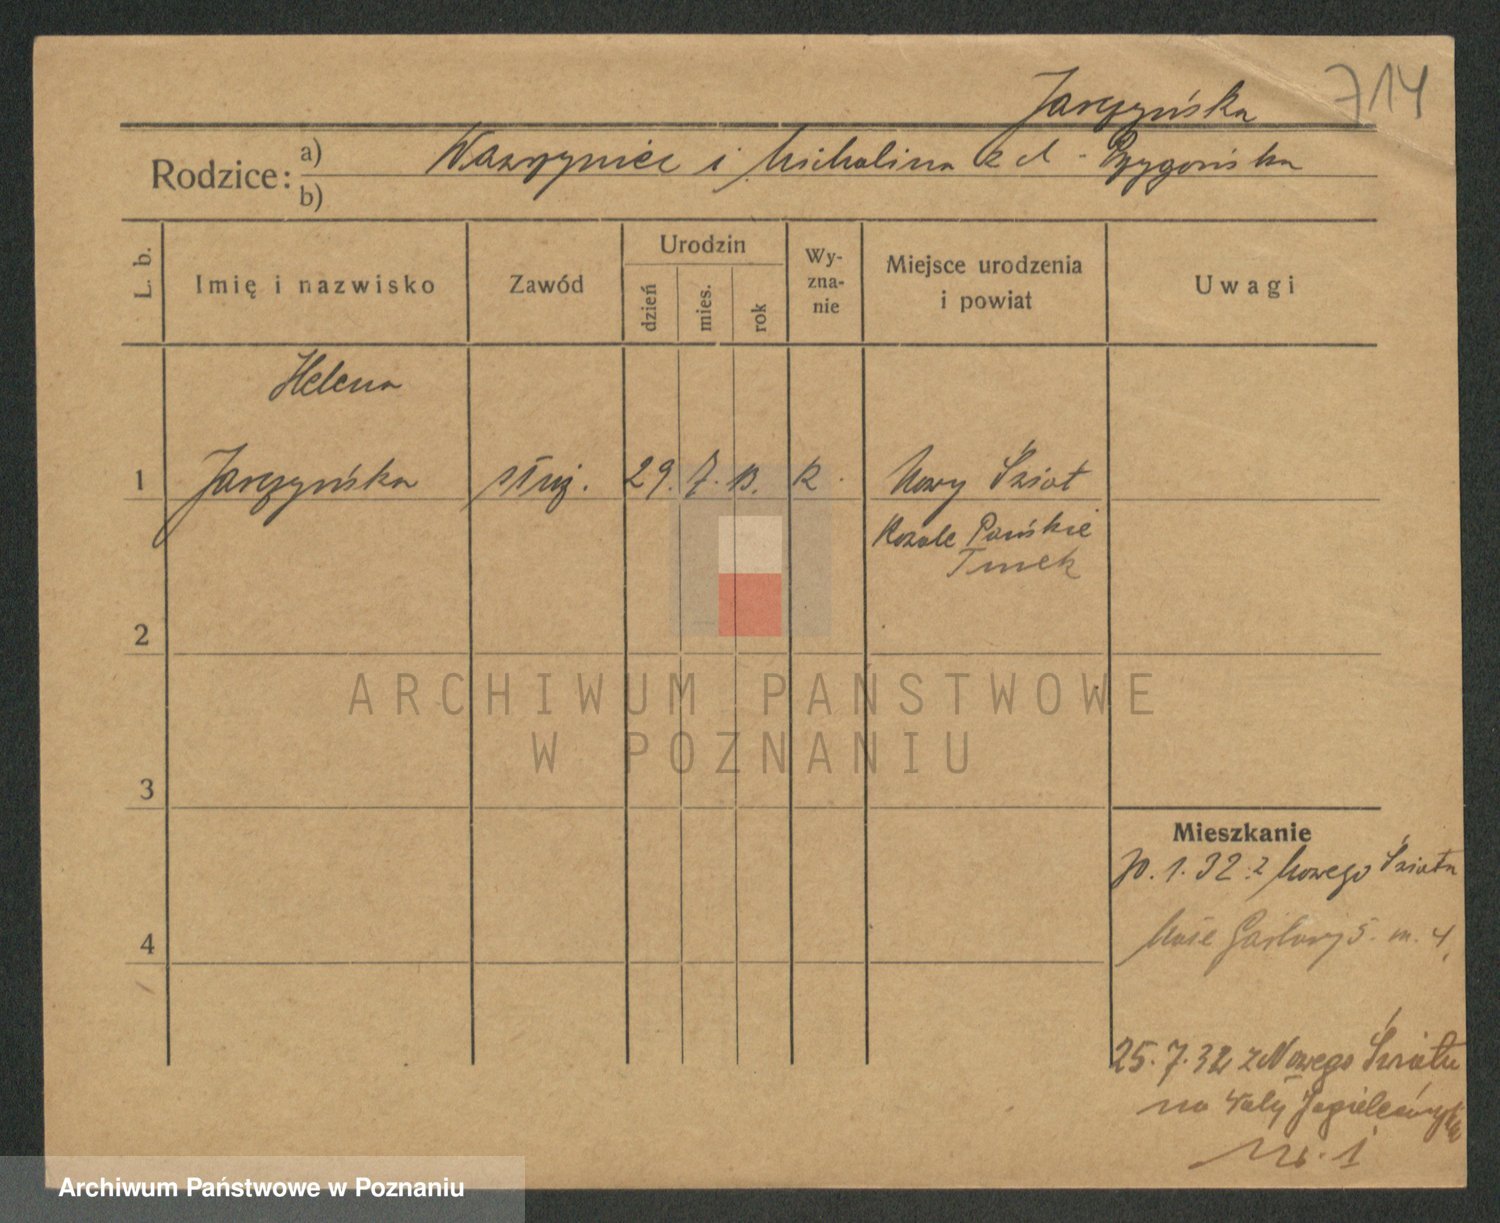 714
Jaręzyńska
Rodzice: a) Wawrzyniec i Michalina z d. Przygońska
b)
L. b.
Imię i nazwisko
Zawód
Urodzin
dzień
mies.
rok
Wy-
zna-
nie
Miejsce urodzenia
i powiat
Uwagi
Helena
1 Jaręzyńska służ. 29. 7. 13. R. Nowy Świat
Kowale Pańskie
Turek
2
ARCHIWUM PAŃSTWOWE
W POZNANIU
3
Mieszkanie
1. 32. z Nowego Świata
4
5. m. 4.
25. 7. 32 z Nowego Świata
na Wały Jagiellończyka
Nr. 1
Archiwum Państwowe w Poznaniu